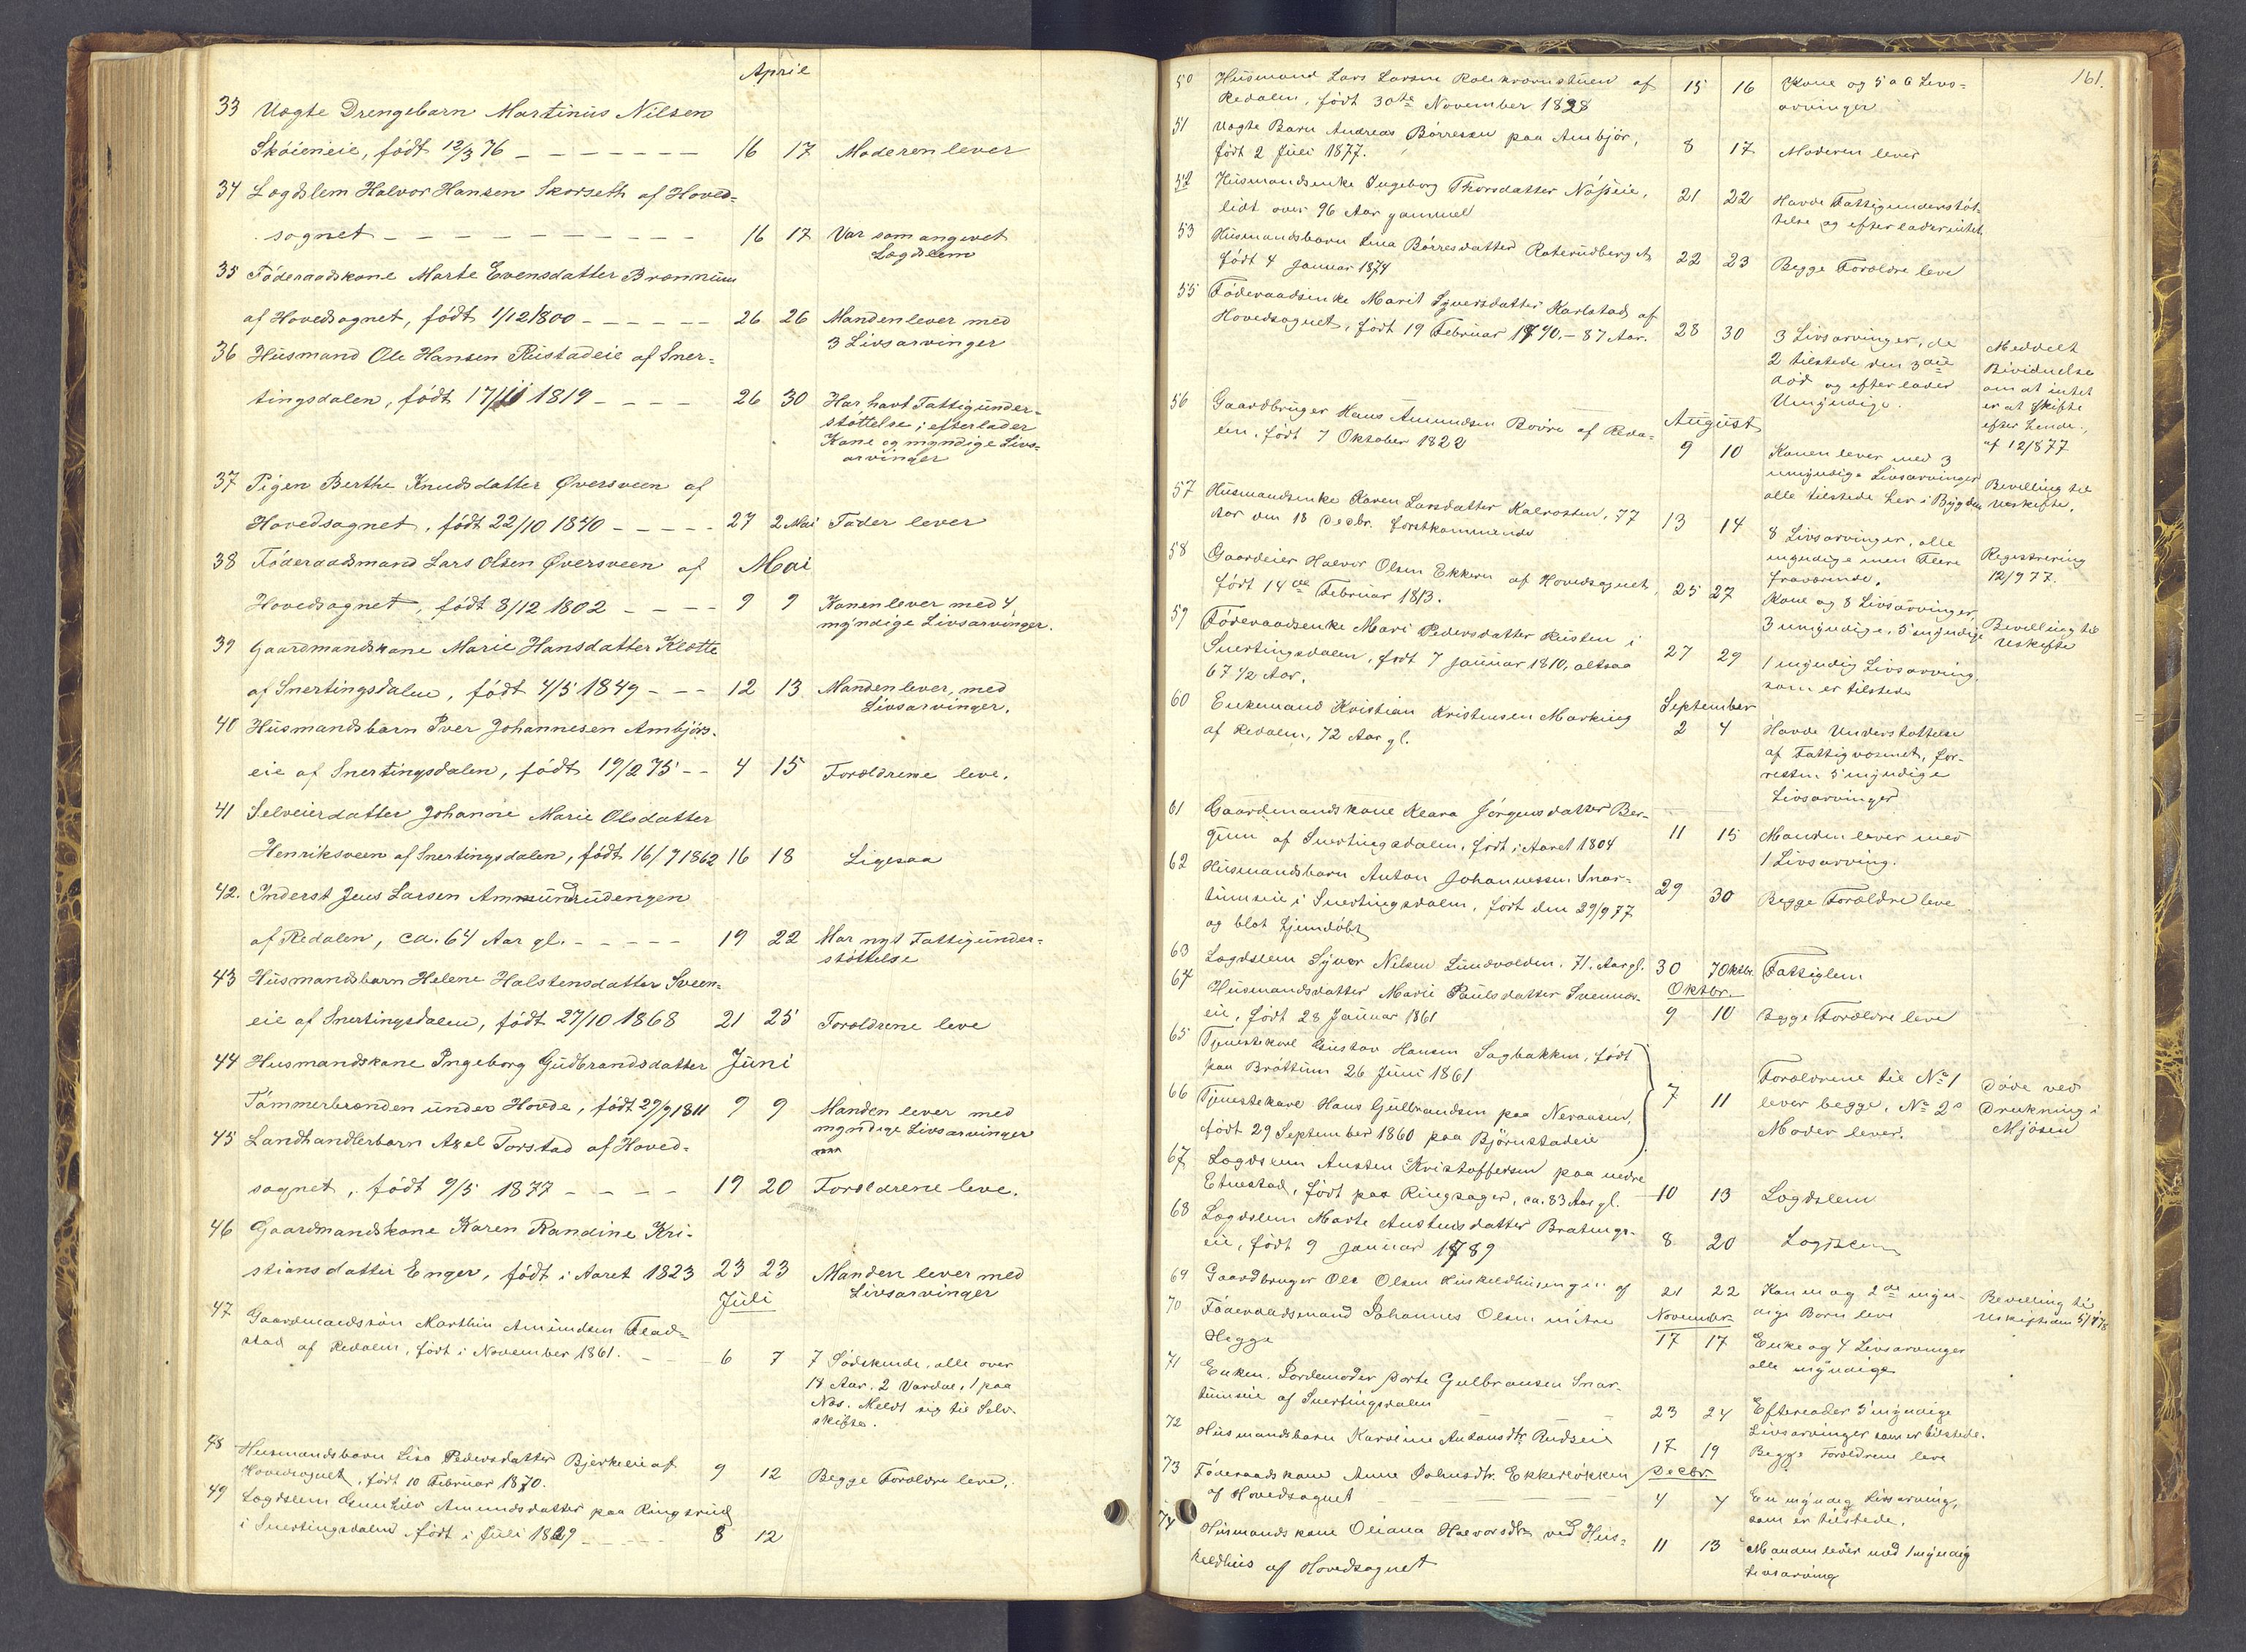 April
33 Uægte Drengebarn Martinus Nilsen
Skøieneie, født 12/3 76 - - - - - - - 16 17 Moderen lever
34 Lægdslem Halvor Hansen Skorseth af Hoved=
sognet - - - - - - - - - - 16 17 Var som angivet
Lægdslem
35 Föderaadskone Marte Evensdatter Brønnum
af Hovedsognet, født 1/12 1800 - - - - - 26 26 Manden lever med
3 Livsarvinger
36 Husmand Ole Hansen Ristadeie af Sner=
tingsdalen, født 17/11 1819 - - - - 26 30 Har havt Fattigunder=
støttelse; efterlader
Kone og myndige Livs=
arvinger
37 Pigen Berthe Knudsdatter Øversveen af
Hovedsognet, født 22/10 1840 - - - - - 27 2 Mai Fader lever
38 Föderaadsmand Lars Olsen Øversveen af Mai
Hovedsognet, født 8/12 1802 - - - - 9 9 Konen lever med 4
myndige Livsarvinger.
39 Gaardmandskone Marie Hansdatter Klætte
af Snertingsdalen, født 4/5 1849 - - - 12 13 Manden lever, med
Livsarvinger.
40 Husmandsbarn Iver Johannesen Ambjørs-
eie af Snertingsdalen, født 19/2 75 - - 4 15 Forældrene leve.
41 Selveierdatter Johanne Marie Olsdatter
Henriksveen af Snertingsdalen, født 16/7 1862 16 18 Ligesaa
42. Inderst Jens Larsen Ammundrudengen
af Redalen, ca. 64 Aar gl. - - - - - 19 22 Har nyt Fattigunder=
støttelse
43 Husmandsbarn Helene Halstensdatter Sveen=
eie af Snertingsdalen, født 27/10 1868 21 25 Forældrene leve
44 Husmandskone Ingeborg Gudbrandsdatter Juni
Tömmerbrænden under Hovde, født 29/9 1811 9 9 Manden lever med
myndige Livsarvinger
45 Landhandlerbarn Axel Torstad af Hoved=
sognet, født 9/5 1877 - - - - 19 20 Forældrene leve.
46 Gaardmandskone Karen Randine Kri-
stiansdatter Enger, født i Aaret 1823 23 23 Manden lever med
Livsarvinger
Juli
47 Gaardmandssøn Marthin Amundsen Flad=
stad af Redalen, født i November 1861. - - 6 7 7 Södskende, alle over
18 Aar. 2 Vardal, 1 paa
Næs. Meldt sig til Selv-
skifte.
48 Husmandsbarn Lisa Pedersdatter Bjerkeeie af
Hovedsognet, født 10 Februar 1870. 9 12 Begge Forældre leve.
49 Lægdslem Gunhild Amundsdatter paa Ringsrud
i Snertingsdalen født i Juli 1829 - - - - - 8 12
161.
50 Husmand Lars Larsen af 15 16 Kone og 5 a 6 Livs=
Redalen, født 30te November 1828 arvinger
51 Uægte Barn Andreas Børresen paa Ambjør, 8 17 Moderen lever
født 2 Juli 1877.
52 Husmandsenke Ingeborg Thorsdatter Nøsseie, 21 22 Havde Fattigunderstøt-
lidt over 96 Aar gammel telse og efterlader intet
53 Husmandsbarn Børresdatter Raterudberget 22 23 Begge Forældre leve
født 4 Januar 1874
55 Föderaadsenke Marit Syversdatter Karlstad af
Hovedsognet, født 19 Februar 1790, - 87 Aar. 28 30 3 Livsarvinger, de Meddelt
2 tilstede den 3die Bividnelse
død og efterlader om at intet
Umyndige. er at skifte
efter hende,
af 12/8 77
56 Gaardbruger Hans Amundsen Bøvre af Reda= August
len, født 7 Oktober 1822 9 10 Konen lever med 3
umyndige Livsarvinger Bevilling til
alle tilstede her i Bygden Uskifte.
57 Husmandsenke Karen Larsdatter Kalrosten, 77 13 14 8 Livsarvinger, alle
Aar den 18 Decbr. førstkommende myndige men Flere Registrering
fraværende. 12/9 77.
58 Gaardeier Halvor Olsen Ekkern af Hovedsognet, 25 27 Kone og 8 Livsarvinger,
født 14de Februar 1813. 3 umyndige, 5 myndige Bevilling til
Uskifte
59 Föderaadsenke Mari Pedersdatter Risten i
Snertingsdalen, født 7 Januar 1810, altsaa 27 29 1 myndig Livsarving,
67 1/2 Aar. som er tilstede
60 Enkemand Kristian Kristensen Marking September
af Redalen, 72 Aar gl. 2 4 Havde Understøttelse
af Fattigvæsenet, for-
resten 5 myndige
Livsarvinger
61 Gaardmandskone Klara Jörgensdatter Ber-
gum af Snertingsdalen, født i Aaret 1804 11 15 Manden lever med
1 Livsarving.
62 Husmandsbarn Anton Johannessen Snar-
tumseie i Snertingsdalen, født den 29/9 77 29 30 Begge Forældre leve
og blot hjemdøbt
63 Lægdslem Syver Nilsen Lundvolden. 71 Aar gl. 30 7 Oktbr. Fattiglem
Oktbr.
64 Husmandsdatter Marie Paulsdatter Svennes-
eie, født 28 Januar 1861 9 10 Begge Forældre leve
65 Tjenestekarl Gustav Hansen Sagbakken, født
paa Bröttum 26 Juni 1861 7 11 Forældrene til No 1 Døde ved
lever begge, No 2s Drukning i
Moder lever. Mjösen
66 Tjenestekarl Hans Gulbrandsen paa Neraasen,
født 29 September 1860 paa Björnstadeie
67 Lægdslem Austen Kristoffersen paa nedre
Etnestad, født paa Ringsager, ca. 83 Aar gl. 10 13 Lægdslem
68 Lægdslem Marte Austensdatter Bratengs-
eie, født 9 Januar 1789 8 20 Lægdslem
69 Gaardbruger Ole Olsen Huskeldhusengen af 21 22 Konen og 2de myn- Bevilling til
dige Børn leve Uskifte 5/1 78
November
70 Föderaadsmand Johannes Olsen nedre
Hegge 17 17 Enke og 4 Livsarvinger
alle myndige
71 Enken, Jordemoder Dorte Gulbransen Snar-
tumseie af Snertingsdalen 23 24 Efterlader 5 myndige
Livsarvinger som er tilstede.
72 Husmandsbarn Karoline Antonsdtr Rudseie 17 19 Begge Forældrene leve
73 Föderaadskone Anne Johnsdtr. Ekkerløkken Decbr
af Hovedsognet 4 4 En myndig Livsarving,
som er tilstede.
74 Husmandskone Oliana Halvorsdtr ved Hus- 11 13 Manden lever med 1 myndig
keldhus af Hovedsognet Livsarving